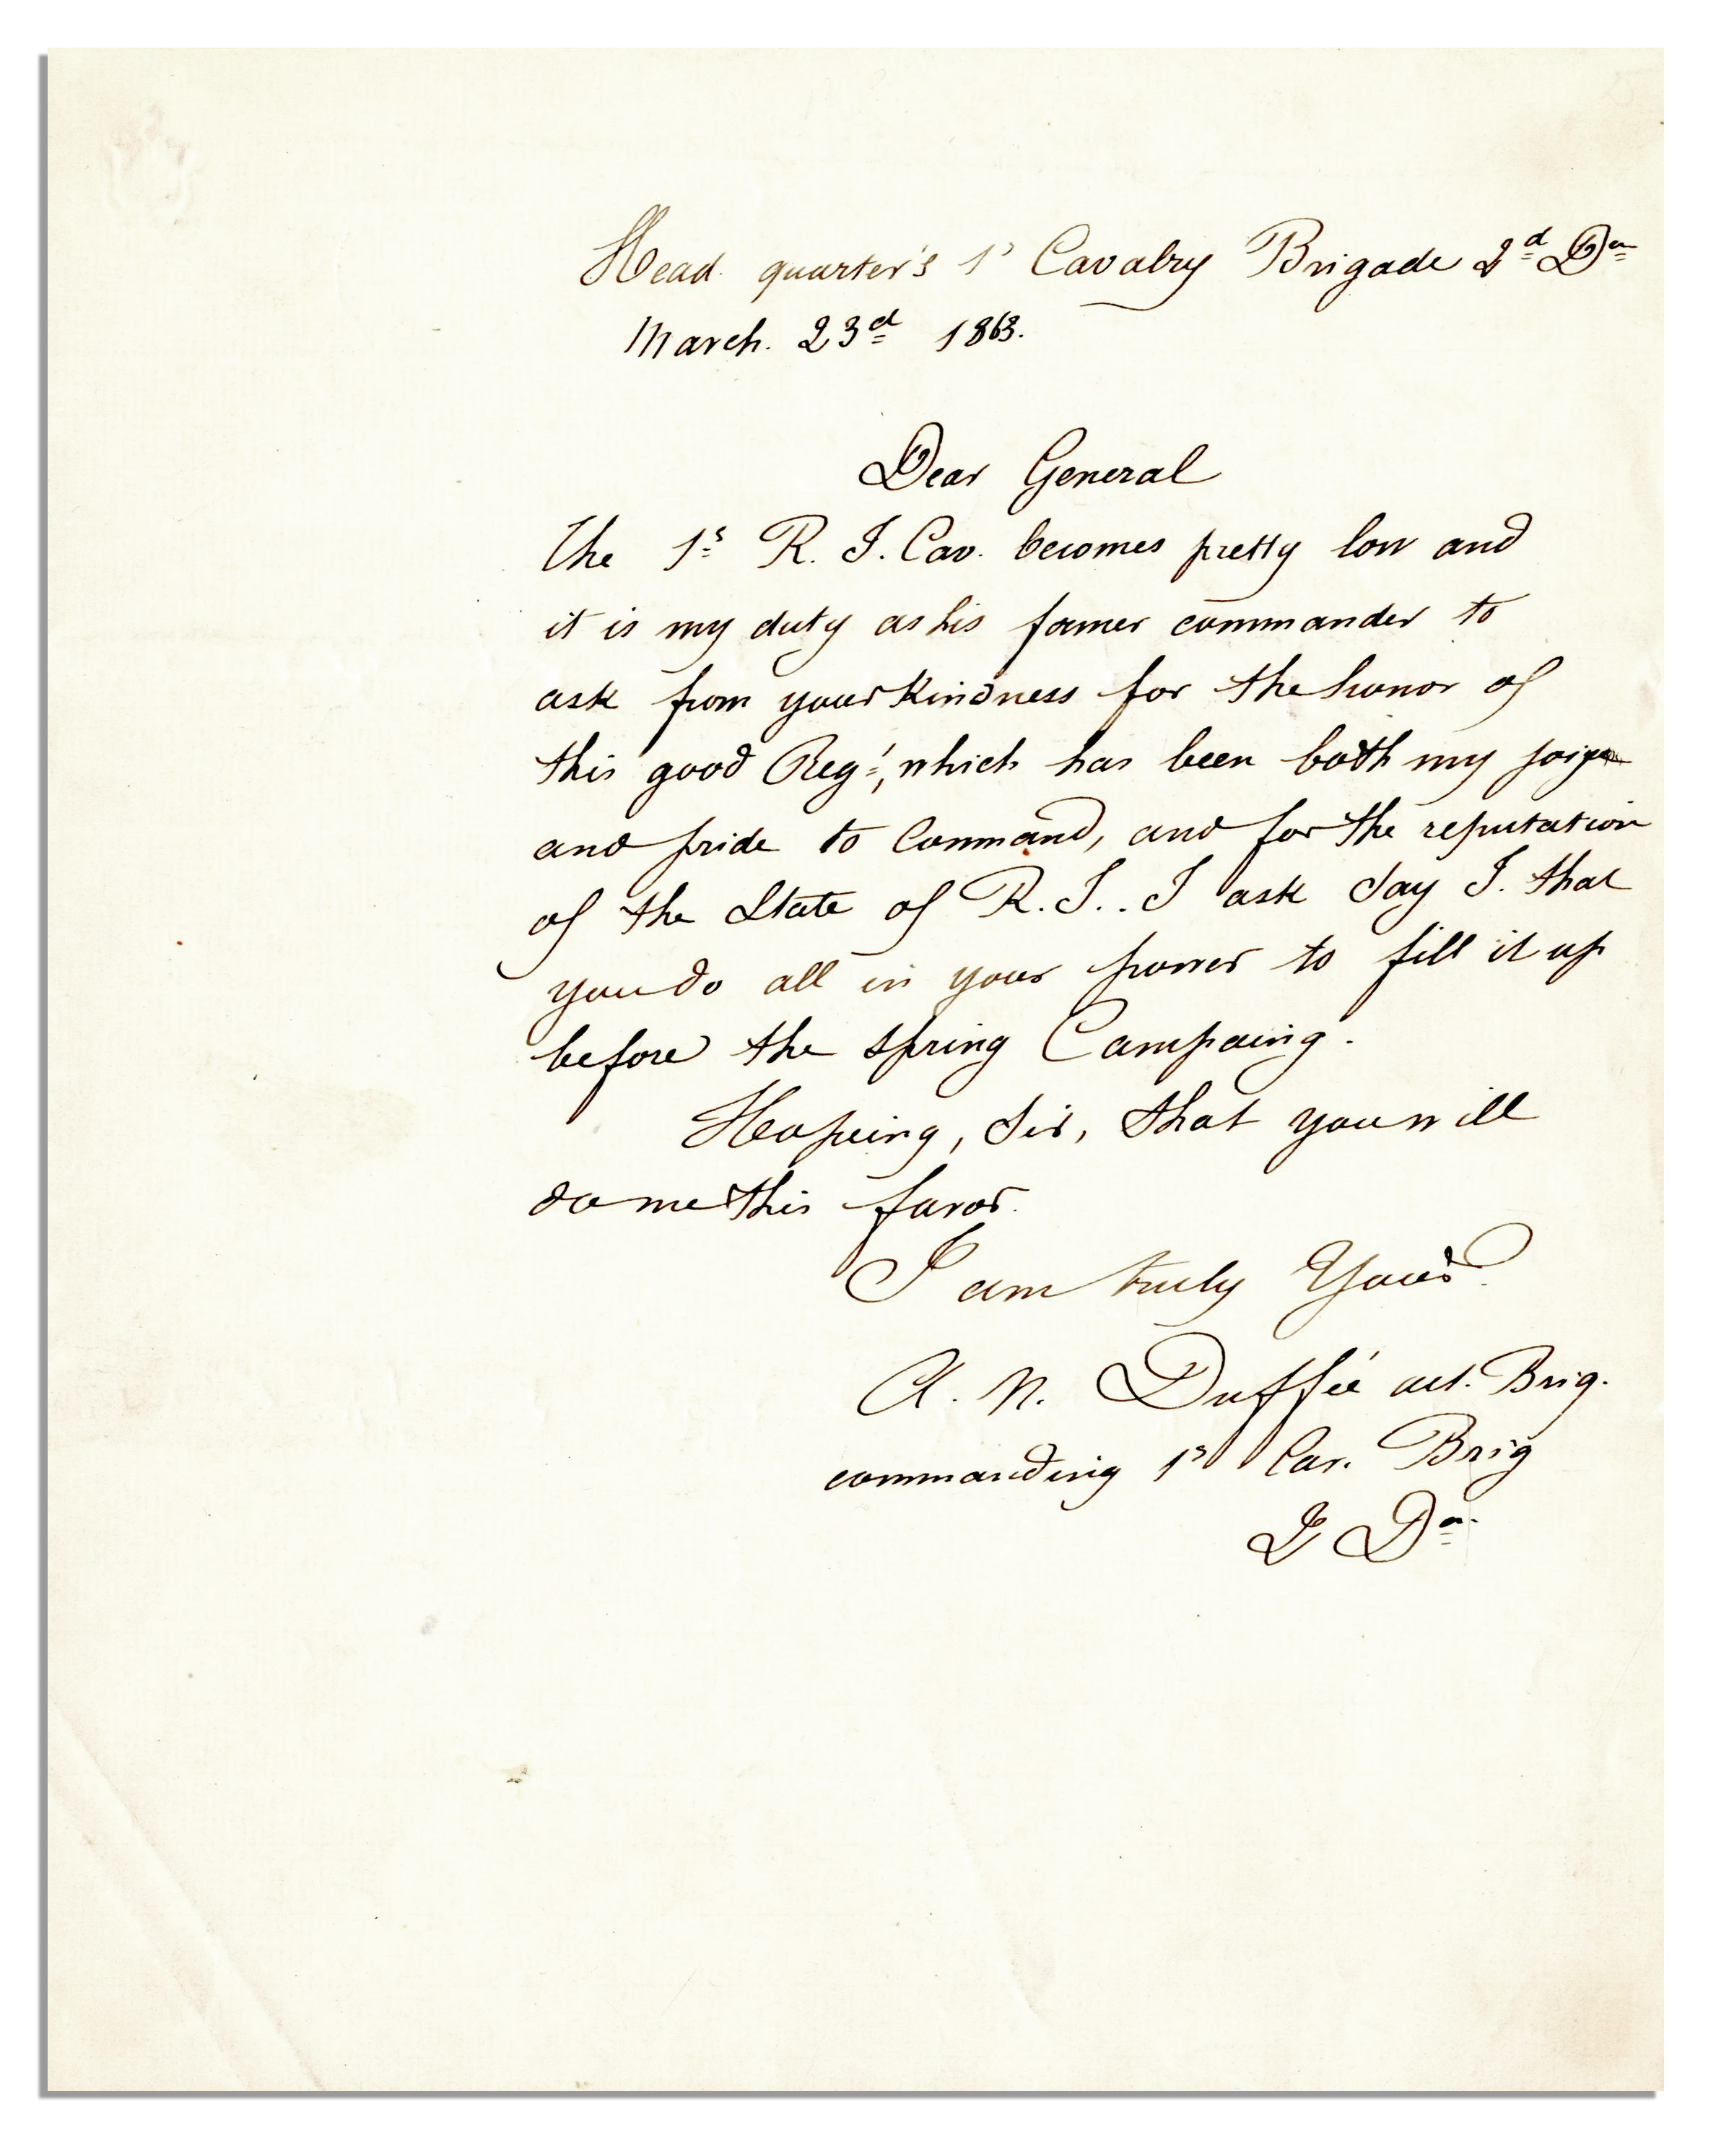 Head quarter's 1s Cavalry Brigade 2d Dn
March. 23d 1863.
Dear General
The 1s R. I. Cav. becomes pretty low and
it is my duty as his former commander to
ask from your Kindness for the honor of
this good Regt, which has been both my
and pride to Command, and for the reputation
of the State of R. I.. I ask say I. that
you do all in your power to fill it up
before the spring Campaing.
Hopeing, Sir, that you will
do me this favor.
I am truly Yours
A. N. Duffié act. Brig.
commanding 1s Cav. Brig
2 Dn.